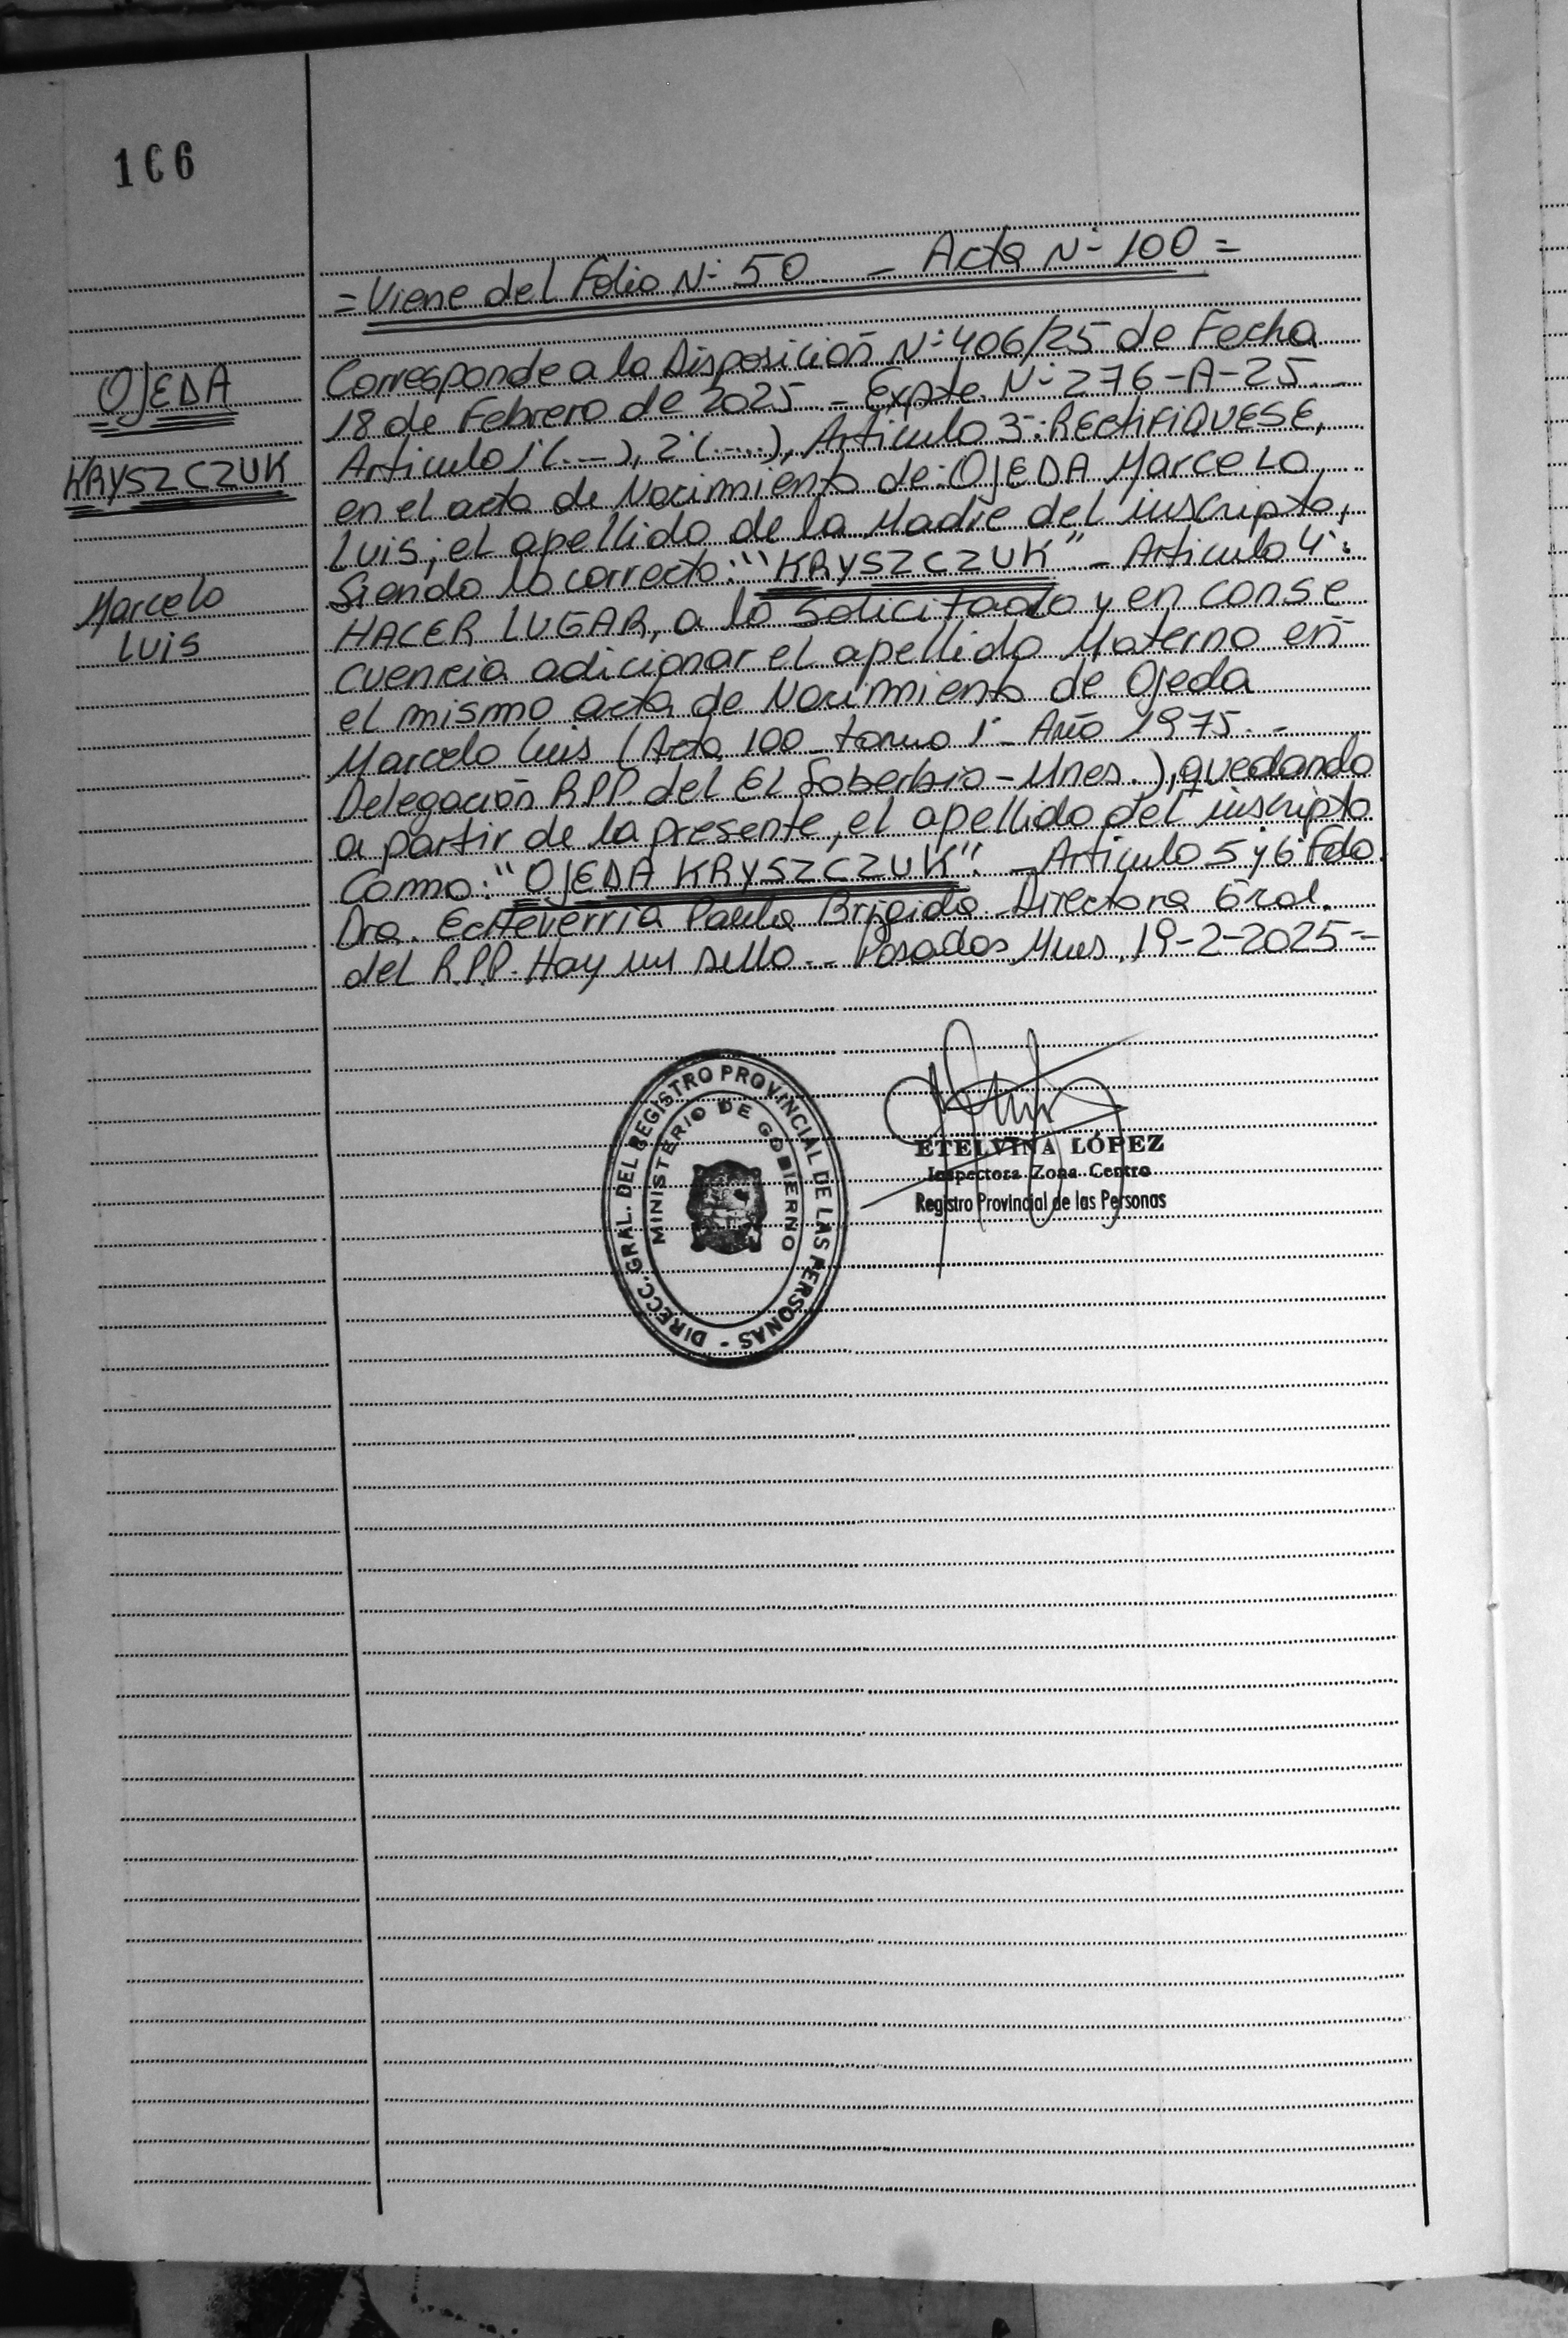 166
= Viene del Folio Nº 50 - Acta Nº 100 =
OJEDA
KRYSZCZUK
Marcelo
Luis
Corresponde a la Disposición Nº 406/25 de Fecha
18 de Febrero de 2025 - Expte. Nº 276-A-25.-
Articulo 1º(.--), 2º(....), Articulo 3º: RECTIFIQUESE,
en el acta de Nacimiento de: OJEDA Marcelo
Luis; el apellido de la Madre del inscripto,
Siendo lo correcto: "KRYSZCZUK" - Articulo 4º:
HACER LUGAR, a lo Solicitado y en conse
cuencia adicionar el apellido Materno en
el mismo acta de Nacimiento de Ojeda
Marcelo Luis (Acta 100 - tomo 1º - Año 1975.-
Delegación R.P.P. del El Soberbio - Mnes.), quedando
a partir de la presente, el apellido del inscripto
Como: "OJEDA KRYSZCZUK". - Articulo 5 y 6º Fdo
Dra. Echeverria Paula Brigida Directora Gral.
del R.P.P. Hay un sello.- Posadas Mnes. 19-2-2025=
DIRECC. GRAL. DEL REGISTRO PROVINCIAL DE LAS PERSONAS -
MINISTERIO DE GOBIERNO
ETELVINA LÓPEZ
Inspectora Zona Centro
Registro Provincial de las Personas